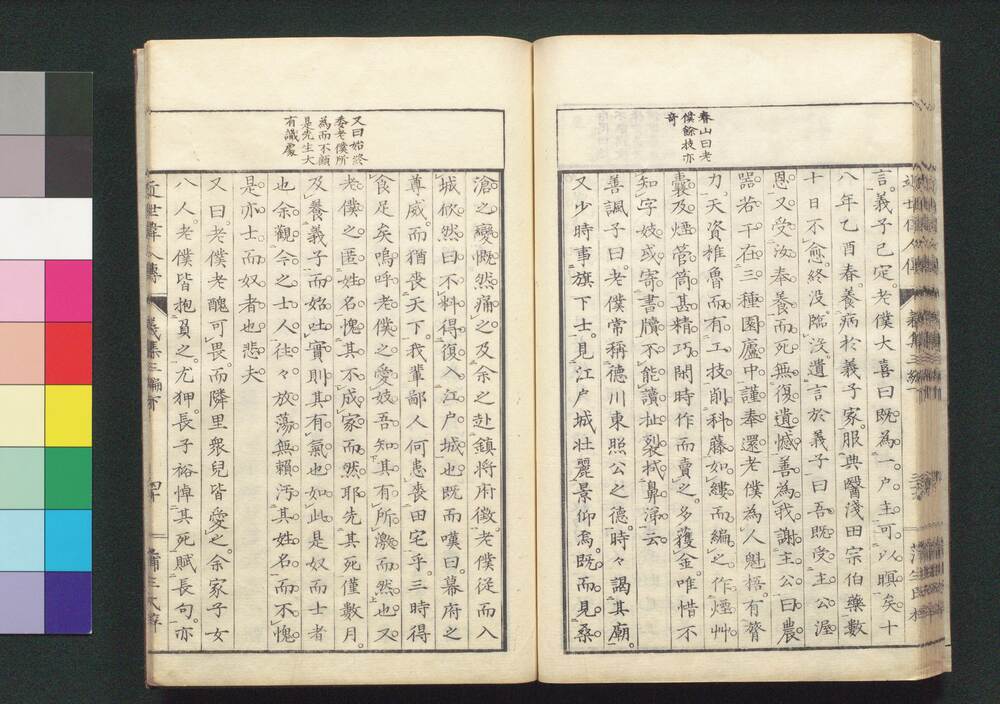 春山曰老
僕餘技亦
奇
言。義子已定。老僕大喜曰既為一戸主。可以瞑矣。十
八年乙酉春。養病於義子家。服典醫淺田宗伯藥。數
十日不愈。終没。臨没。遺言於義子曰吾既受主公渥
恩。又受汝奉養而死。無復遺憾。善為我謝主公曰。農
器若干在三種園廬中。謹奉還。老僕為人魁梧。有膂
力。天資椎魯而有工技。削科藤如縷而編之。作煙艸
嚢及煙管筒甚精巧。閑時作而賣之。多獲金。唯惜不
知字。妓或寄書牘不能讀。扯裂拭鼻涕云
善諷子曰。老僕常稱德川東照公之德。時々謁其廟。
又少時事旗下士。見江戸城壯麗景仰焉。既而見桑
又曰始終
委老僕所
為而不顧
是先生大
有識處
滄之變慨然痛之。及余之赴鎮將府徵。老僕從而入
城。攸然曰不料得復入江戸城也。既而嘆曰。幕府之
尊威。而猶喪天下。我輩鄙人何患喪田宅乎。三時得
食足矣。嗚呼老僕之愛妓。吾知其有所激而然也。又
老僕之匿姓名。愧其不成家而然耶。先其死僅數月。
及養義子而始吐實。則其有氣也如此。是奴而士者
也。余觀今之士人。往々放蕩無賴。汚其姓名而不愧。
是亦士而奴者也悲夫
又曰。老僕老醜可畏。而隣里衆兒皆愛之。余家子女
八人。老僕皆抱負之。尤狎。長子裕悼其死。賦長句。亦
近世偉人傳
義集三編亦
四十
蒲生氏梓